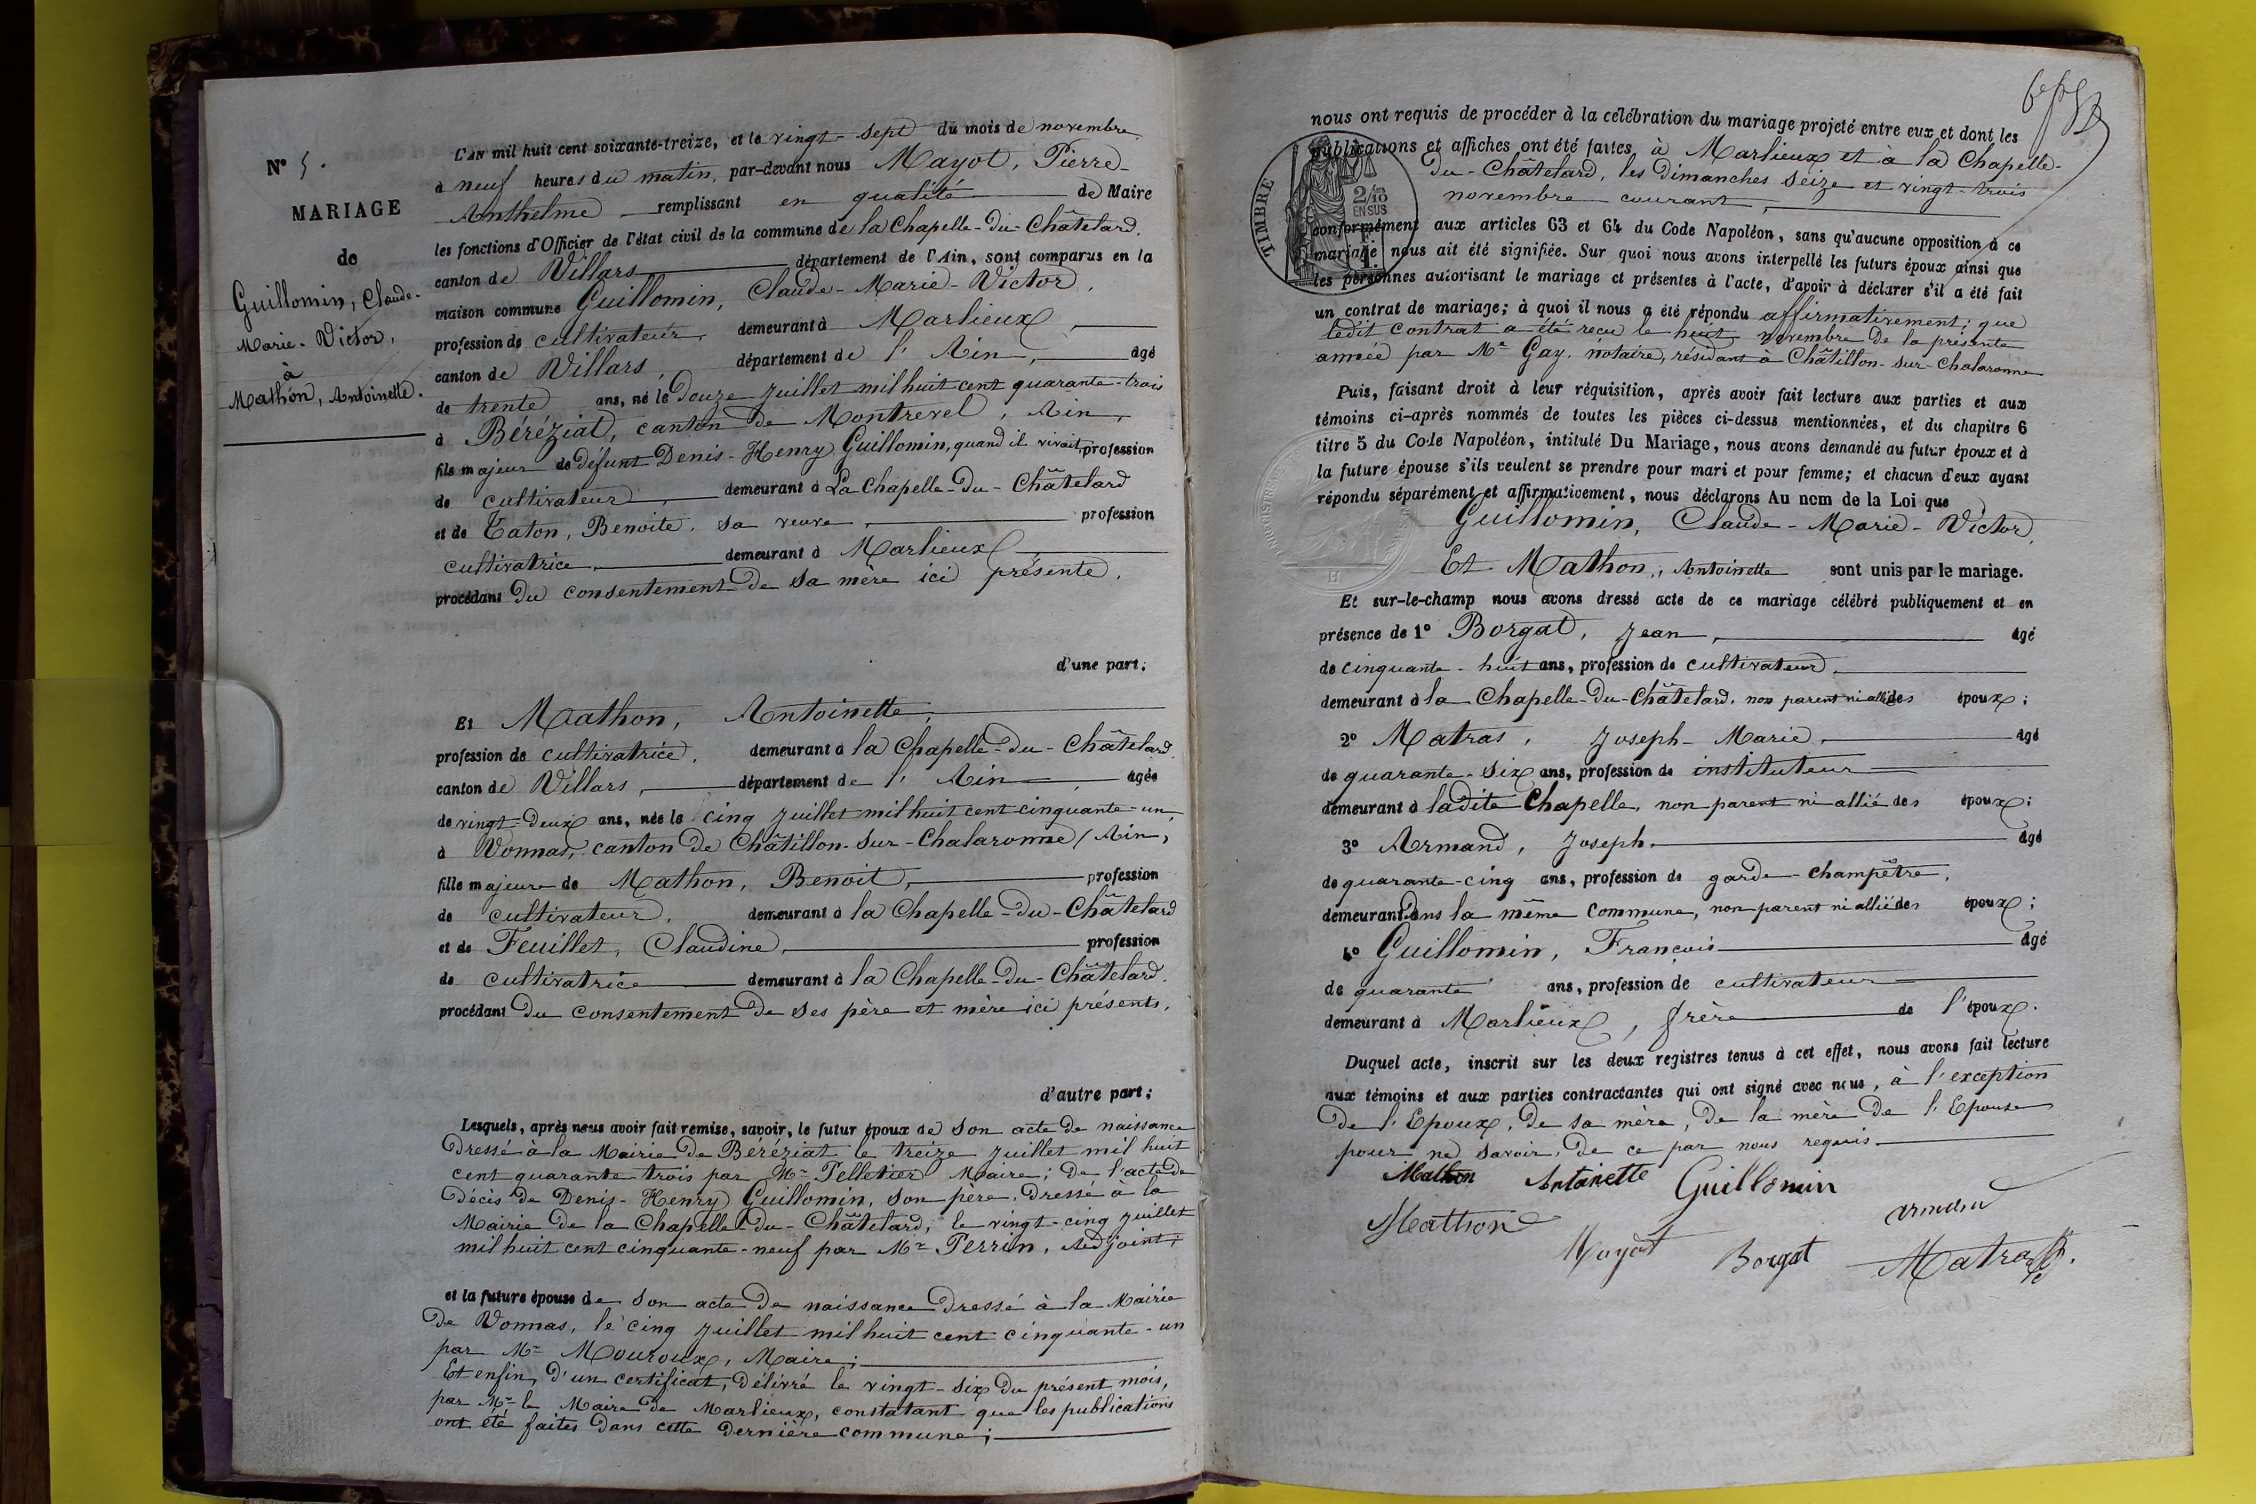 N° 5.
MARIAGE
de
Guillomin, Claude-
Marie-Victor,
à
Mathon, Antoinette.
L'AN mil huit cent soixante-treize, et le vingt-sept du mois de novembre
à neuf heures du matin, par-devant nous Mayot, Pierre-
Anthelme remplissant en qualité de Maire
les fonctions d'Officier de l'état civil de la commune de la Chapelle-du-Châtelard,
canton de Villars département de l'Ain, sont comparus en la
maison commune Guillomin, Claude-Marie-Victor,
profession de cultivateur, demeurant à Marlieux,
canton de Villars, département de l'Ain, âgé
de trente ans, né le douze juillet mil huit cent quarante-trois
à Béréziat, canton de Montrevel, Ain,
fils majeur de défunt Denis-Henry Guillomin, quand il vivait, profession
de cultivateur, demeurant à La Chapelle-du-Châtelard
et de Taton, Benoite, sa veuve, profession
cultivatrice, demeurant à Marlieux
procédant du consentement de sa mère ici présente,
d'une part;
Et Mathon, Antoinette,
profession de cultivatrice, demeurant à la Chapelle-du-Châtelard
canton de Villars, département de l'Ain, âgée
de vingt-deux ans, née le cinq juillet mil huit cent cinquante-un,
à Vonnas, canton de Châtillon-sur-Chalaronne, Ain,
fille majeure de Mathon, Benoit, profession
de cultivateur, demeurant à la Chapelle-du-Châtelard
et de Feuillet, Claudine, profession
de cultivatrice demeurant à la Chapelle-du-Châtelard,
procédant du consentement de ses père et mère ici présents,
d'autre part;
Lesquels, après nous avoir fait remise, savoir, le futur époux de son acte de naissance
dressé à la Mairie de Béréziat le treize juillet mil huit
cent quarante trois par Mr Pelletier Maire; de l'acte de
décès de Denis-Henry Guillomin, son père, dressé à la
Mairie de la Chapelle-du-Châtelard, le vingt-cinq juillet
mil huit cent cinquante-neuf par Mr Perrin, Adjoint;
et la future épouse de son acte de naissance dressé à la Mairie
de Vonnas, le cinq juillet mil huit cent cinquante-un
par Mr Mouroux, Maire;
Et enfin, d'un certificat, délivré le vingt-six du présent mois,
par Mr le Maire de Marlieux, constatant que les publications
ont été faites dans cette dernière commune;
nous ont requis de procéder à la célébration du mariage projeté entre eux et dont les
publications et affiches ont été faites, à Marlieux et à la Chapelle-
du-Châtelard, les dimanches seize et vingt-trois
novembre courant,
TIMBRE
2/10
EN SUS
conformément aux articles 63 et 64 du Code Napoléon, sans qu'aucune opposition à ce
mariage nous ait été signifiée. Sur quoi nous avons interpellé les futurs époux ainsi que
les personnes autorisant le mariage et présentes à l'acte, d'avoir à déclarer s'il a été fait
un contrat de mariage; à quoi il nous a été répondu affirmativement; que
ledit contrat a été reçu le huit novembre de la présente
année par Me Gay, notaire, résidant à Châtillon-sur-Chalaronne
Puis, faisant droit à leur réquisition, après avoir fait lecture aux parties et aux
témoins ci-après nommés de toutes les pièces ci-dessus mentionnées, et du chapitre 6
titre 5 du Code Napoléon, intitulé Du Mariage, nous avons demandé au futur époux et à
la future épouse s'ils veulent se prendre pour mari et pour femme; et chacun d'eux ayant
répondu séparément et affirmativement, nous déclarons Au nom de la Loi que
Guillomin, Claude-Marie-Victor,
Et Mathon, Antoinette sont unis par le mariage.
Et sur-le-champ nous avons dressé acte de ce mariage célébré publiquement et en
présence de 1° Borgat, Jean, âgé
de cinquante-huit ans, profession de cultivateur,
demeurant à la Chapelle-du-Châtelard, non parent ni allié des époux;
2° Matras, Joseph-Marie, âgé
de quarante-six ans, profession de instituteur
demeurant à ladite Chapelle, non parent ni allié des époux;
3° Armand, Joseph, âgé
de quarante-cinq ans, profession de garde-champêtre,
demeurant dans la même commune, non parent ni allié des époux;
4° Guillomin, François âgé
de quarante ans, profession de cultivateur
demeurant à Marlieux, frère de l'époux.
Duquel acte, inscrit sur les deux registres tenus à cet effet, nous avons fait lecture
aux témoins et aux parties contractantes qui ont signé avec nous, à l'exception
de l'Epoux, de sa mère, de la mère de l'Epouse
pour ne savoir, de ce par nous requis.
Mathon Antoinette Guillomin
Mathon Armand
Mayot Borgat Matras